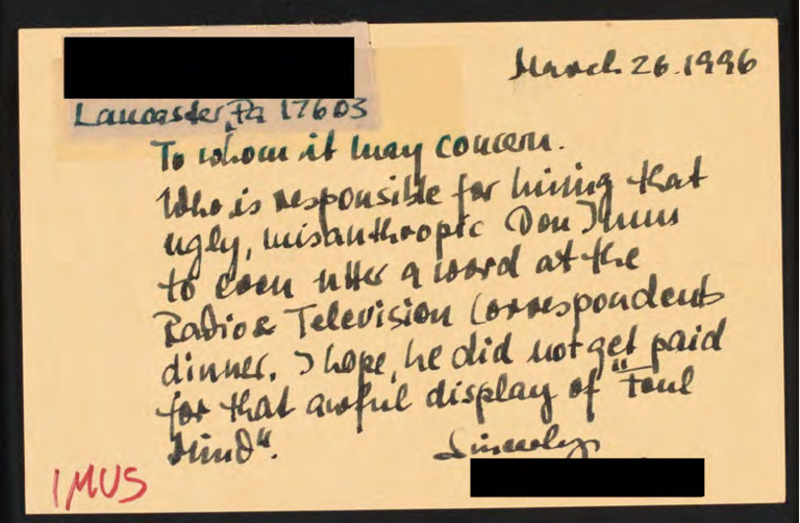 Lancaster, Pa 17603
March 26. 1996
To whom it may concern.
Who is responsible for hiring that
ugly, misanthropic Don Imus
to even utter a word at the
Radio & Television Correspondents
dinner. I hope, he did not get paid
for that awful display of "Foul
Mind".
Sincerely,
IMUS